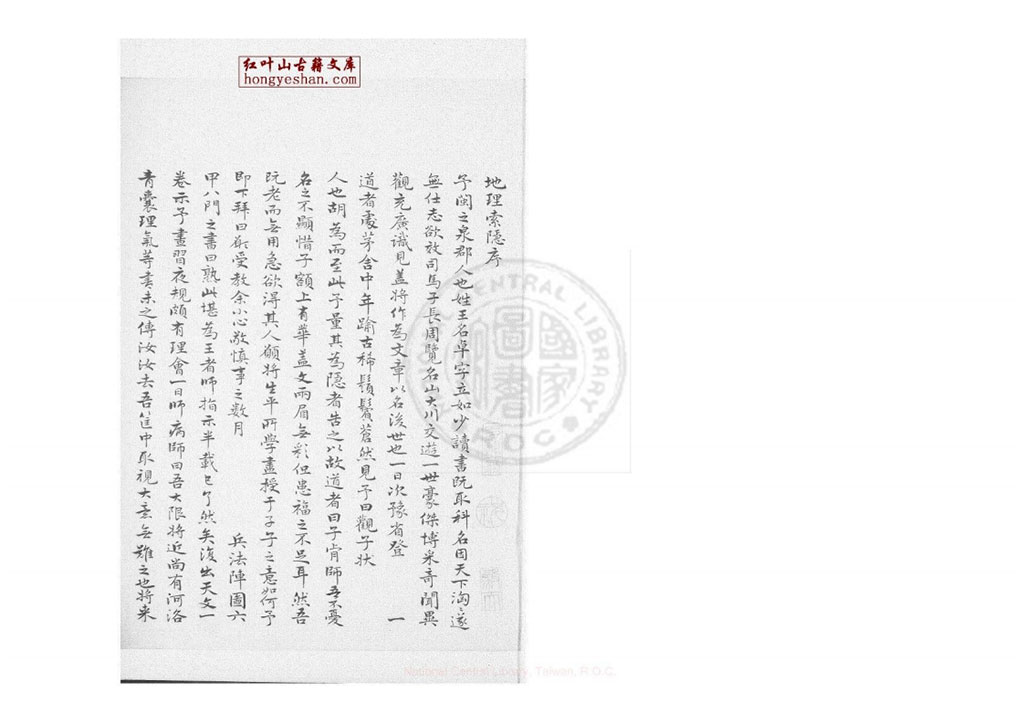 红叶山古籍文库
hongyeshan.com
地理索隱序
予閩之泉郡人也姓王名卓字立如少讀書既取科名因天下洶洶遂
無仕志欲放司馬子長周覽名山大川交遊一世豪傑博采奇聞異
觀充廣識見盖將作為文章以名後世也一日次豫省登 一
道者處茅舍中年踰古稀鬚鬢蒼然見予曰觀子狀
人也胡為而至此予量其為隱者告之以故道者曰子肯師吾不憂
名之不顯惜子額上有華盖文兩眉無彩但患福之不足耳然吾
既老而無用急欲得其人願將生平所學盡授于子子之意如何予
即下拜曰願受教余小心敬慎事之数月 兵法陣圖六
甲八門之書曰熟此堪為王者師指示半載已了然矣復出天文一
卷示予晝習夜規頗有理會一日師病師曰吾大限將近尚有河洛
青囊理氣等書未之傳汝汝去吾筐中取視大意無難之也將来
NATIONAL CENTRAL LIBRARY
R.O.C.
國家圖書
National Central Library, Taiwan, R.O.C.